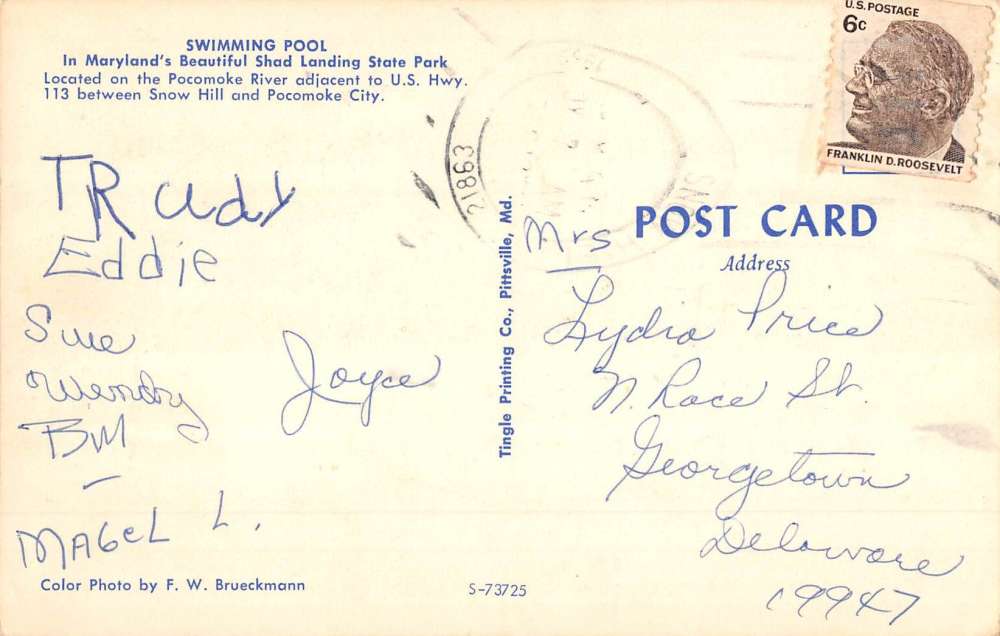 SWIMMING POOL
In Maryland's Beautiful Shad Landing State Park
Located on the Pocomoke River adjacent to U.S. Hwy.
113 between Snow Hill and Pocomoke City.
TRudy
Eddie
Sue
Wendy
Joyce
Bill
MAbeL L.
Color Photo by F. W. Brueckmann
S-73725
Tingle Printing Co., Pittsville, Md.
21863
U.S. POSTAGE
6c
FRANKLIN D. ROOSEVELT
POST CARD
Address
Mrs
Lydia Price
N. Race St.
Georgetown
Delaware
19947